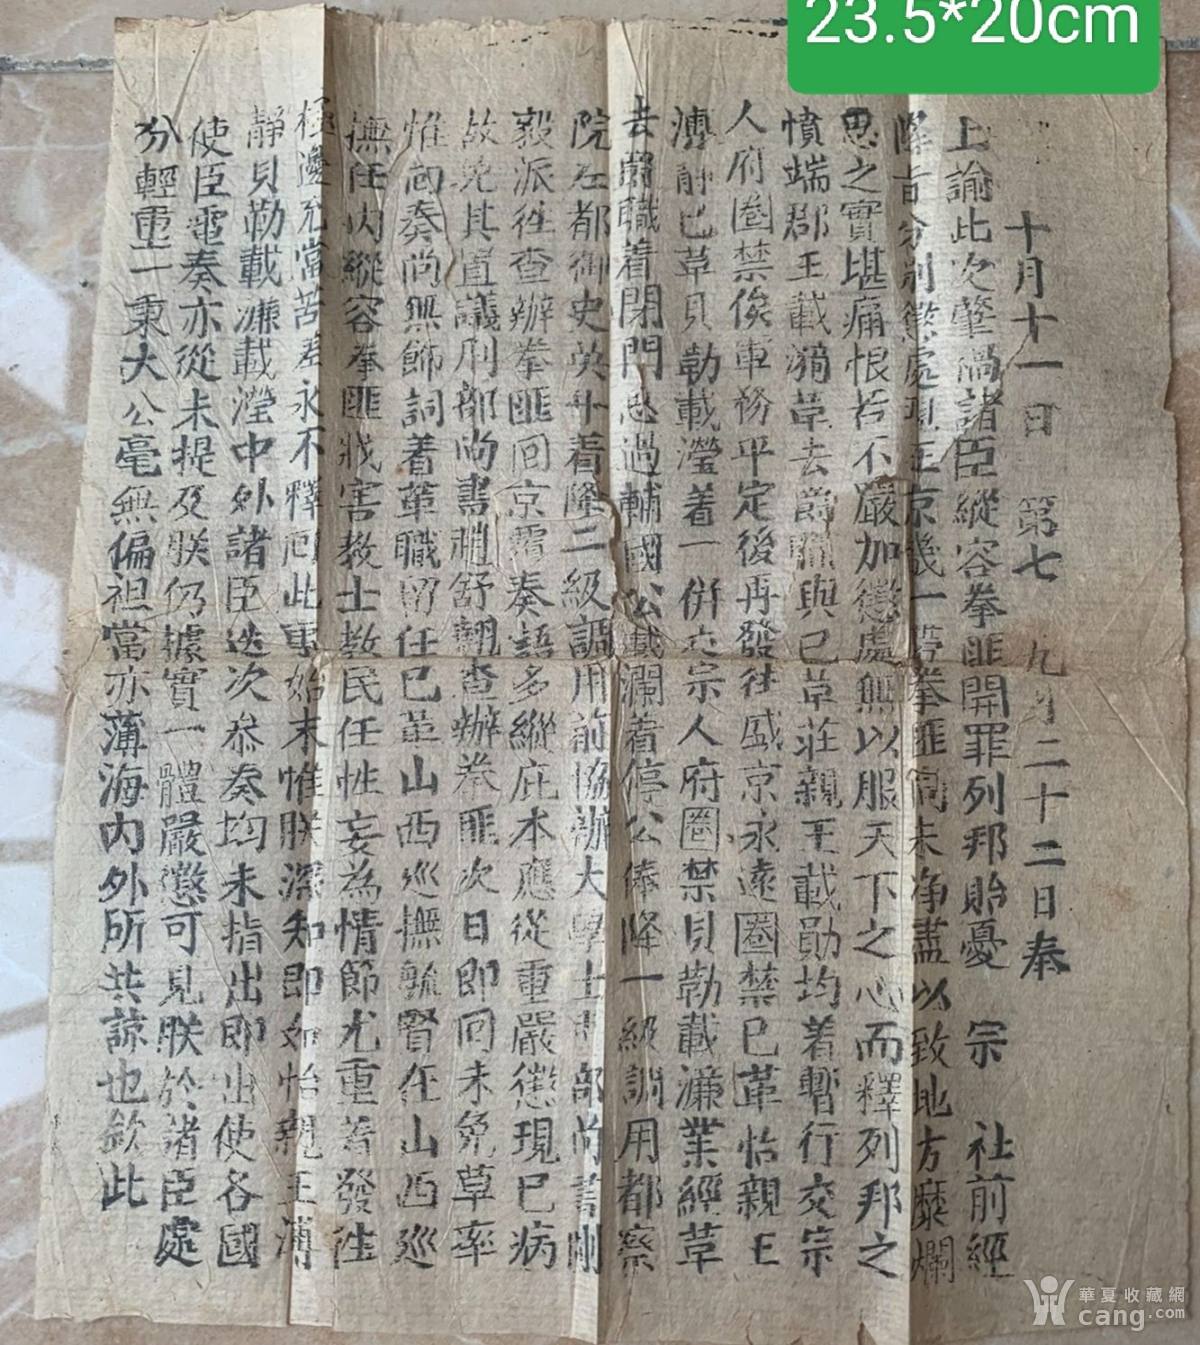 23.5*20cm
十月十一日 第七 九月二十二日奉
上諭此次肇禍諸臣縱容拳匪開罪列邦貽憂 宗 社前經
降旨分別懲處現在京畿一帶拳匪尚未净盡以致地方糜爛
思之實堪痛恨若不嚴加懲處無以服天下之心而釋列邦之
憤端郡王載漪革去爵職與已革莊親王載勛均着暫行交宗
人府圈禁俟軍務平定後再發往盛京永遠圈禁已革怡親王
溥静已革貝勒載瀅着一併交宗人府圈禁貝勒載濂業經革
去爵職着閉門思過輔國公載瀾着停公俸降一級調用都察
院左都御史英年着降二級調用前協辦大學士吏部尚書剛
毅派往查辦拳匪回京覆奏語多縱庇本應從重嚴懲現已病
故免其置議刑部尚書趙舒翹查辦拳匪次日即回未免草率
惟回奏尚無飾詞着革職留任已革山西巡撫毓賢在山西巡
撫任内縱容拳匪戕害教士教民任性妄為情節尤重著發往
極邊充當苦差永不釋回此事始末惟朕深知即如怡親王溥
静貝勒載濂載瀅中外諸臣迭次叅奏均未指出即出使各國
使臣電奏亦從未提及朕仍據實一體嚴懲可見朕於諸臣處
分輕重一秉大公毫無偏袒當亦薄海内外所共諒也欽此
華夏收藏網
cang.com